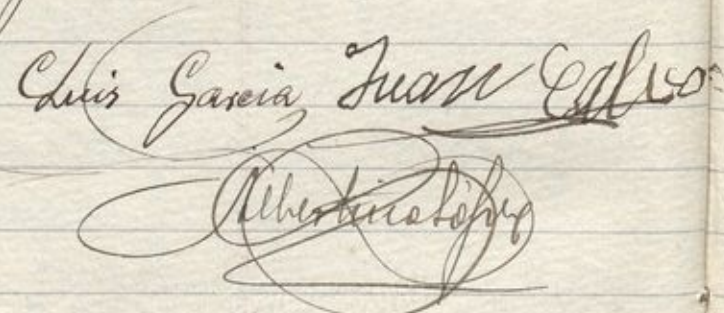 Luis Garcia Juan Calvo
Albertina López